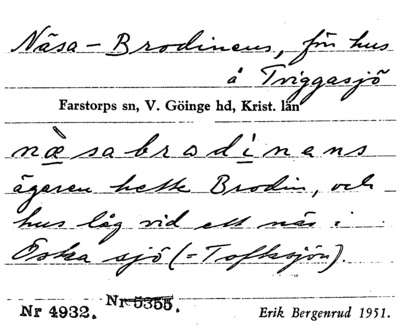 Näsa-Brodinens, förr hus
å Triggasjö
Farstorps sn, V. Göinge hd, Krist. län
næ̀sabrodinans
ägaren hette Brodin, och
hus låg vid ett näs i
Eska sjö (= Toftsjön).
Nr 4932. Nr 5355.
Erik Bergenrud 1951.